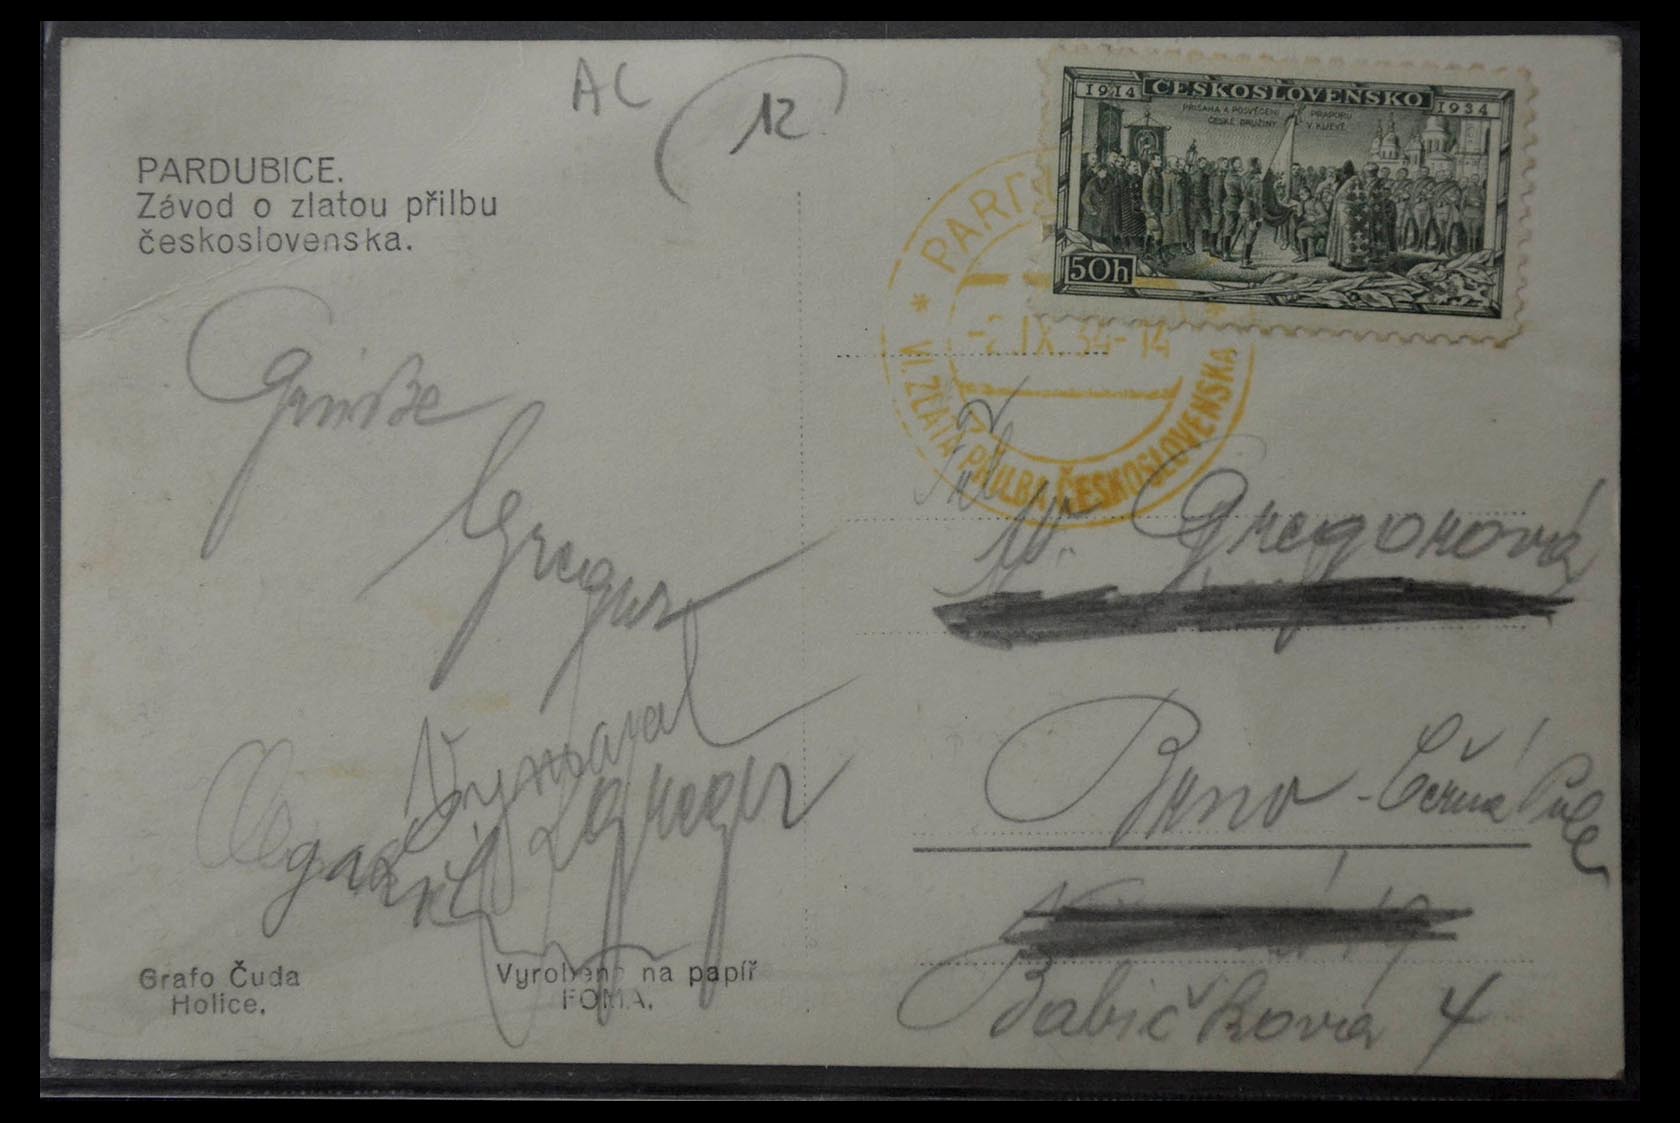 AC
12
PARDUBICE.
Závod o zlatou přilbu
československa.
1914 ČESKOSLOVENSKO 1934
PŘÍSAHA A POSVĚCENÍ PRAPORU
ČESKÉ DRUŽINY V KIJEVĚ
50h
-2.IX.34-14
VI. ZLATÁ PŘILBA ČESKOSLOVENSKA
Grüsse
Gregor
Vymazal
Gregor
Gregorová
Brno - Černá Pole
Babičkova 4
Grafo Čuda
Holice.
Vyrobeno na papíř
FOMA.